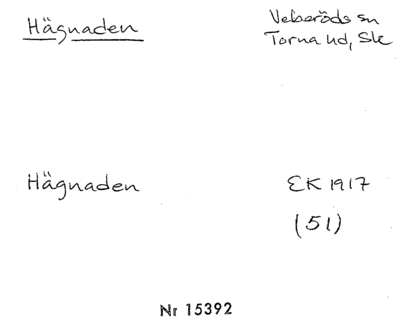 Hägnaden
Veberöds sn
Torna hd, Sk
Hägnaden
EK 1917
(51)
Nr 15392